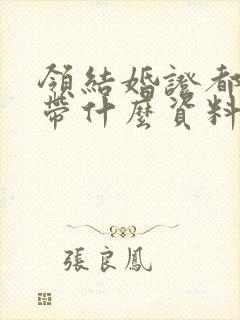 領結婚證都
帶什麼資料
張良鳳